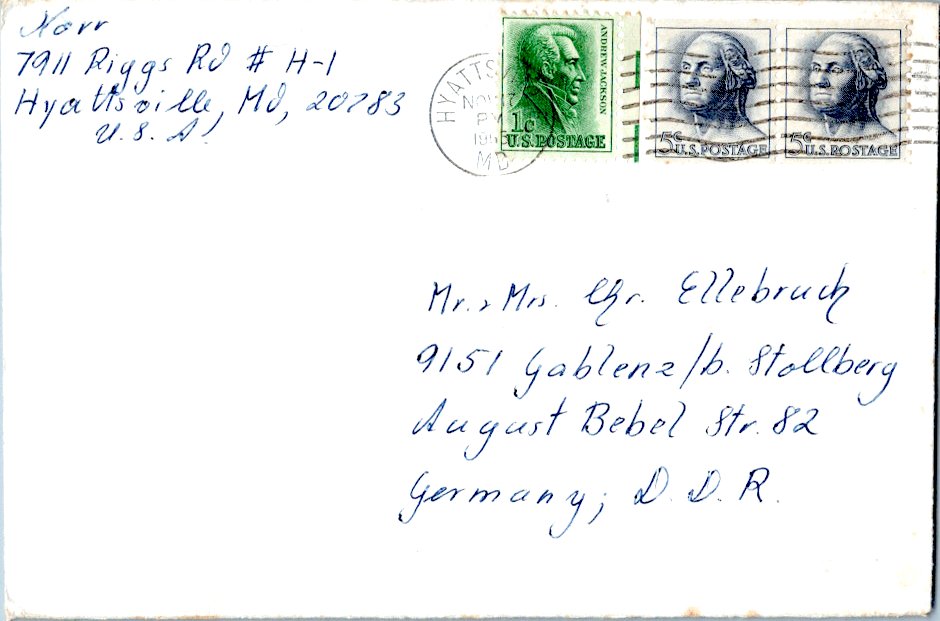 Narr
7911 Riggs Rd # H-1
Hyattsville, Md, 20783
U. S. A.
HYATTS
NOV
PM
19
MD
ANDREW JACKSON
1c
U.S. POSTAGE
5c
U.S. POSTAGE
5c
U.S. POSTAGE
Mr. & Mrs. Chr. Ellebruch
9151 Gablenz/b. Stollberg
August Bebel Str. 82
Germany; D. D. R.